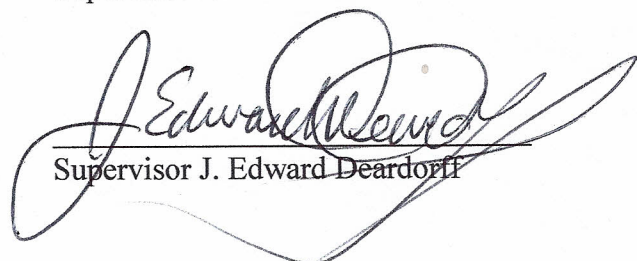 J Edward Deardorff
Supervisor J. Edward Deardorff